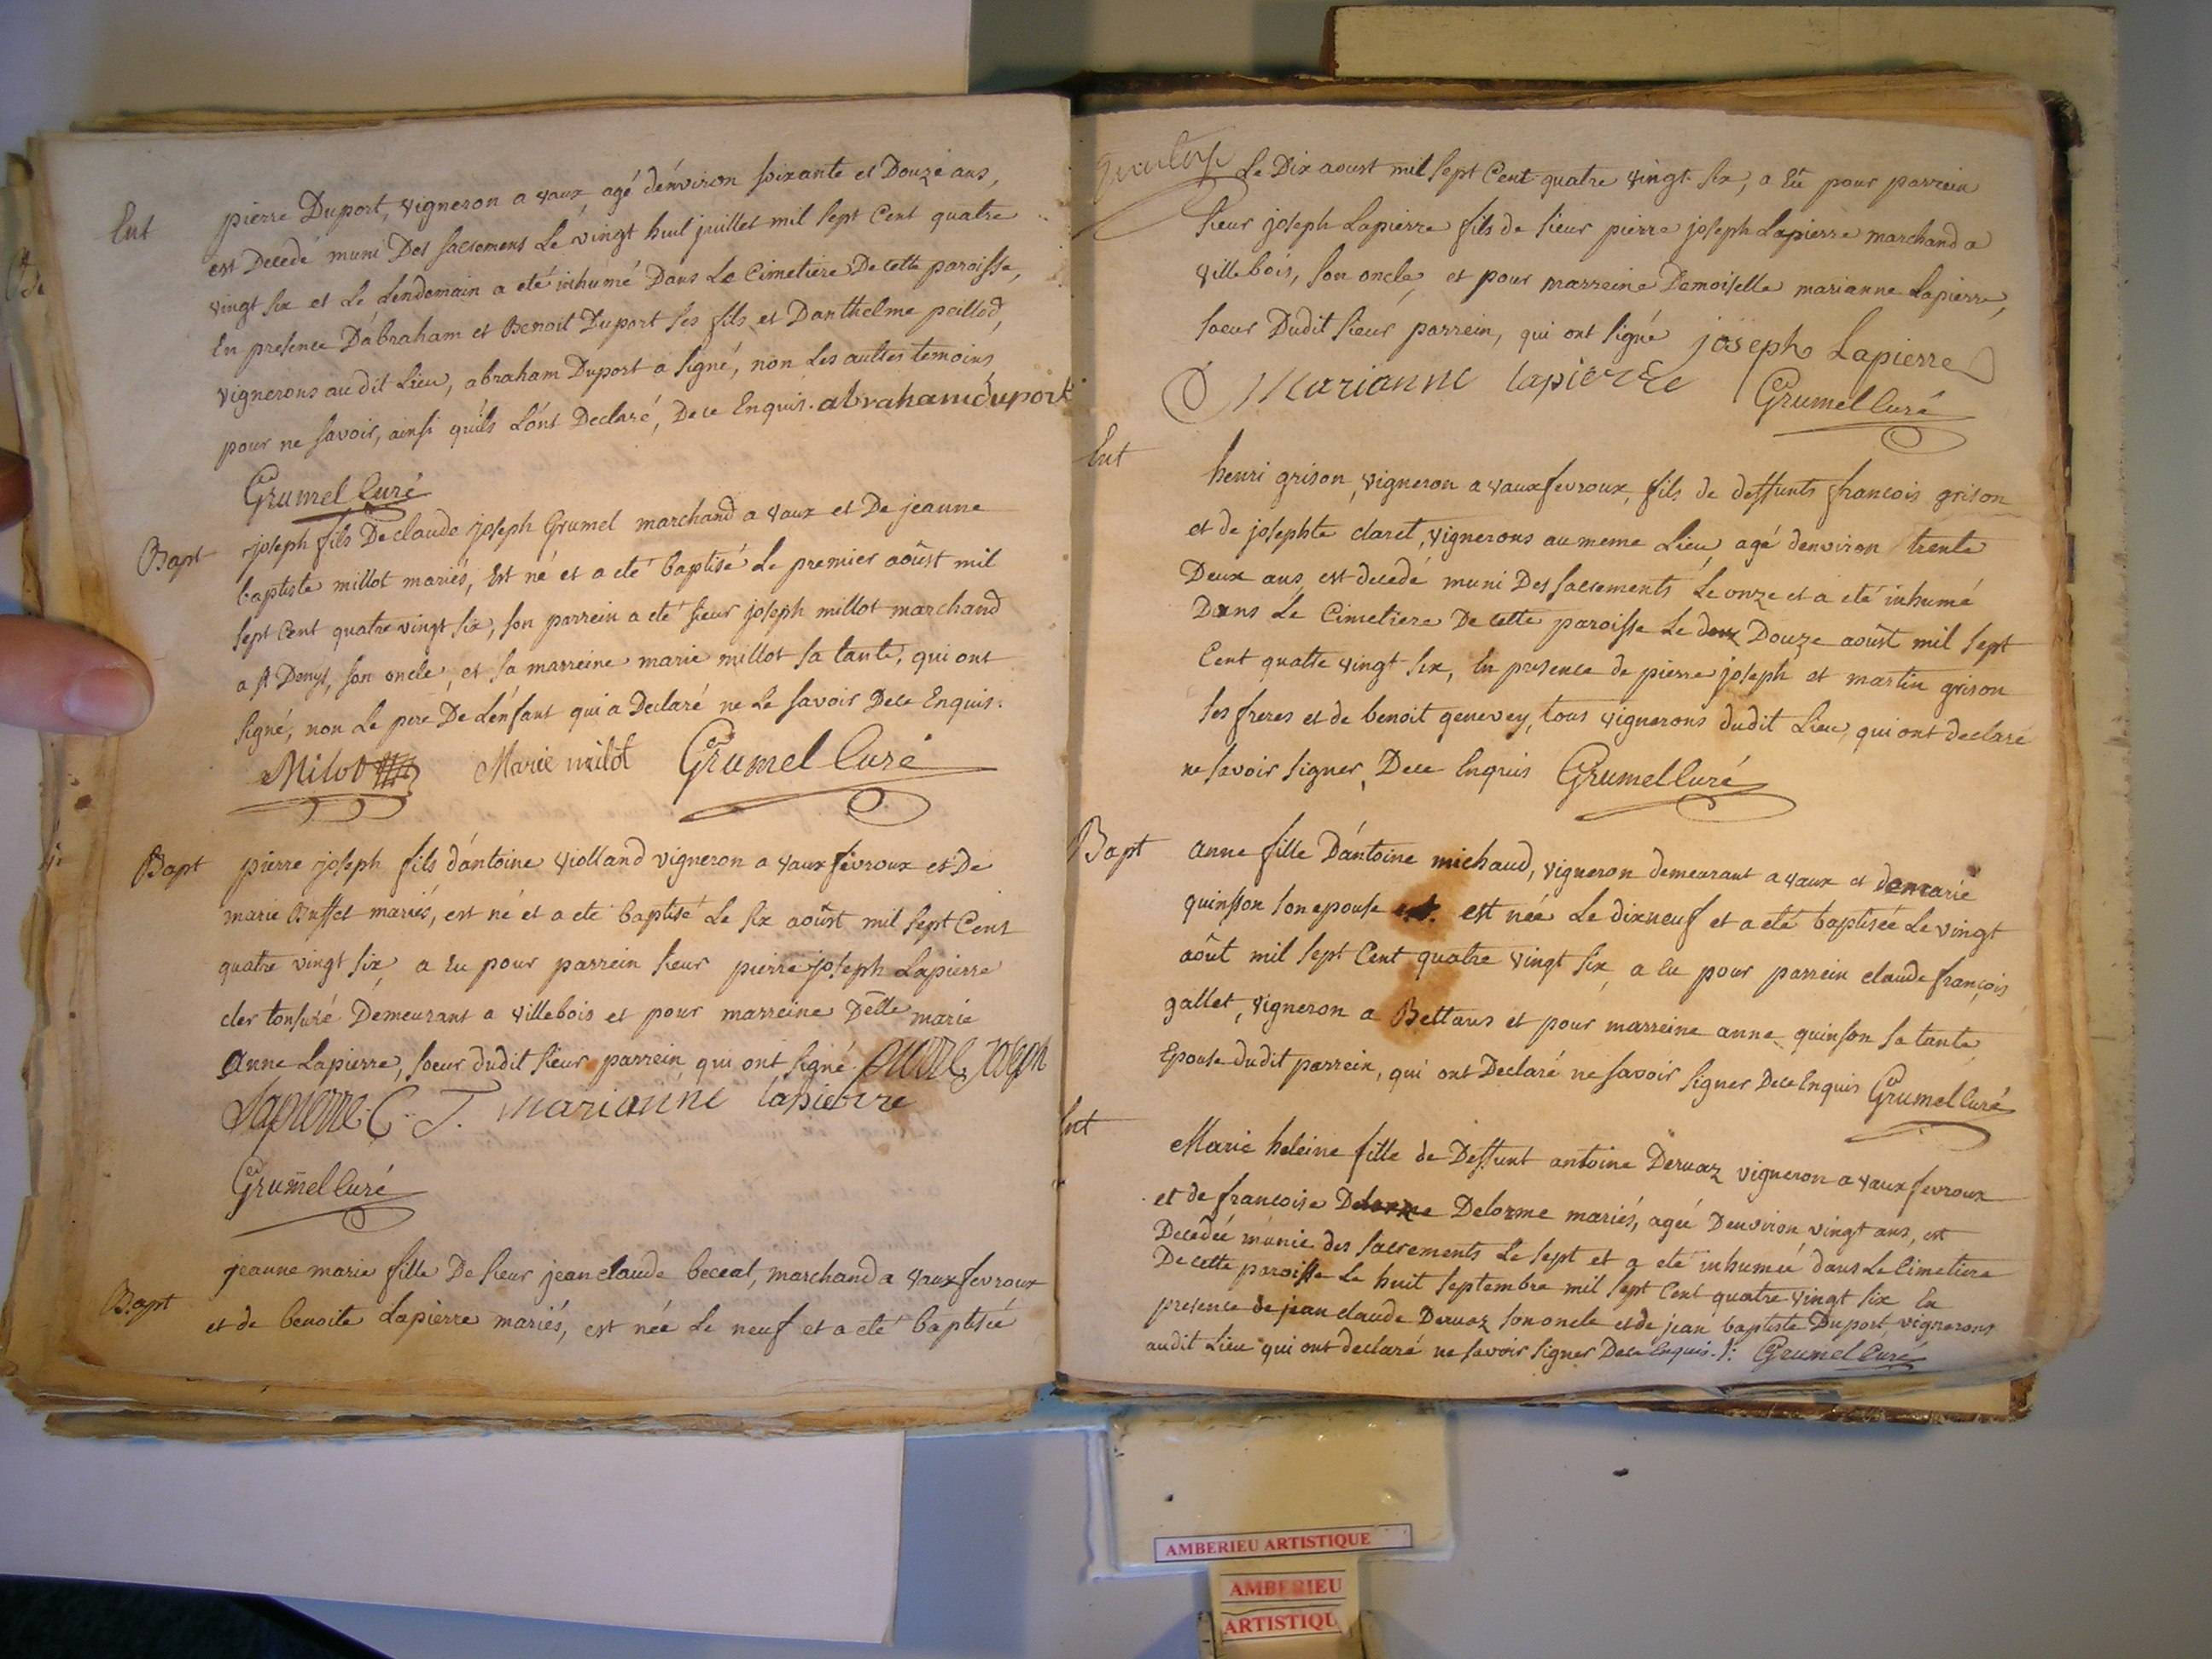 Ent
pierre Duport, vigneron a vaux, agé d'environ soixante et Douze ans,
est Decedé muni Des sacremens Le vingt huit juillet mil sept Cent quatre
vingt six et Le Lendemain a eté inhumé Dans Le Cimetiere De cette paroisse,
En presence D'abraham et Benoit Duport ses fils et Danthelme peillod,
vignerons au dit Lieu, abraham Duport a signé, non Les autres temoins
pour ne savoir, ainsi qu'ils L'ont Declaré, De ce Enquis. abraham duport
Grumel Curé
Bapt
joseph fils De claude joseph Grumel marchand a vaux et De jeanne
baptiste millot mariés, Est né et a eté baptisé Le premier aoûst mil
sept Cent quatre vingt six, son parrein a eté sieur joseph millot marchand
a st Denys, son oncle, et sa marreine marie millot sa tante, qui ont
signé, non Le pere De L'enfant qui a Declaré ne Le savoir De ce Enquis.
Milot Marie milot Grumel Curé
Bapt
pierre joseph fils d'antoine violland vigneron a vaux fevroux et De
marie Buffet mariés, est né et a eté baptisé Le six aoûst mil sept Cent
quatre vingt six, a Eu pour parrein sieur pierre joseph Lapierre
cler tonsuré Demeurant a villebois et pour marreine Delle marie
anne Lapierre, soeur dudit sieur parrein qui ont signé pierre joseph
Lapierre C. T. marianne lapierre
Grumel Curé
Bapt
jeanne marie fille De sieur jean claude beccat, marchand a vaux fevroux
et de benoite Lapierre mariés, est née Le neuf et a eté baptisée
Le Dix aoust mil sept Cent quatre vingt six, a Eu pour parrein
sieur joseph Lapierre fils de sieur pierre joseph Lapierre marchand a
villebois, son oncle, et pour marreine Demoiselle marianne Lapierre,
soeur Dudit sieur parrein, qui ont signé joseph Lapierre
Marianne lapierre Grumel Curé
Ent
henri grison, vigneron a vaux fevroux, fils de deffunts francois grison
et de josephte claret, vignerons au meme Lieu, agé denviron trente
Deux ans est decedé muni Des sacrements Le onze et a eté inhumé
Dans Le Cimetiere De cette paroisse Le Douze aoûst mil sept
Cent quatre vingt six, En presence de pierre joseph et martin grison
ses freres et de benoit genevey, tous vignerons dudit Lieu, qui ont declaré
ne savoir signer, De ce Enquis Grumel Curé
Bapt
anne fille D'antoine michaud, vigneron demeurant a vaux et de marie
quinsson son epouse est née Le dix neuf et a eté baptisée Le vingt
août mil sept Cent quatre vingt six, a Eu pour parrein claude françois
gallet, vigneron a Bettans et pour marreine anne quinson sa tante
Epouse dudit parrein, qui ont Declaré ne savoir signer De ce Enquis Grumel Curé
Ent
Marie heleine fille de Deffunt antoine Dervaz vigneron a vaux fevroux
et de francoise Delorme Delorme mariés, agée Denviron vingt ans, est
Decedée munie des sacrements Le sept et a eté inhumée dans Le Cimetiere
De cette paroisse Le huit septembre mil sept Cent quatre vingt six En
presence de jean claude Dervaz son oncle et de jean baptiste Duport, vignerons
audit Lieu qui ont declaré ne savoir signer De ce Enquis. /: Grumel Curé
AMBERIEU ARTISTIQUE
AMBERIEU
ARTISTIQU